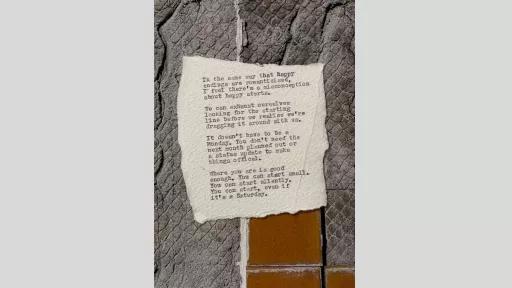 In the same way that happy
endings are romanticised,
I feel there's a misconception
about happy starts.
We can exhaust ourselves
looking for the starting
line before we realise we're
dragging it around with us.
It doesn't have to be a
Monday. You don't need the
next month planned out or
a status update to make
things offical.
Where you are is good
enough. You can start small.
You can start silently.
You can start, even if
it's a Saturday.